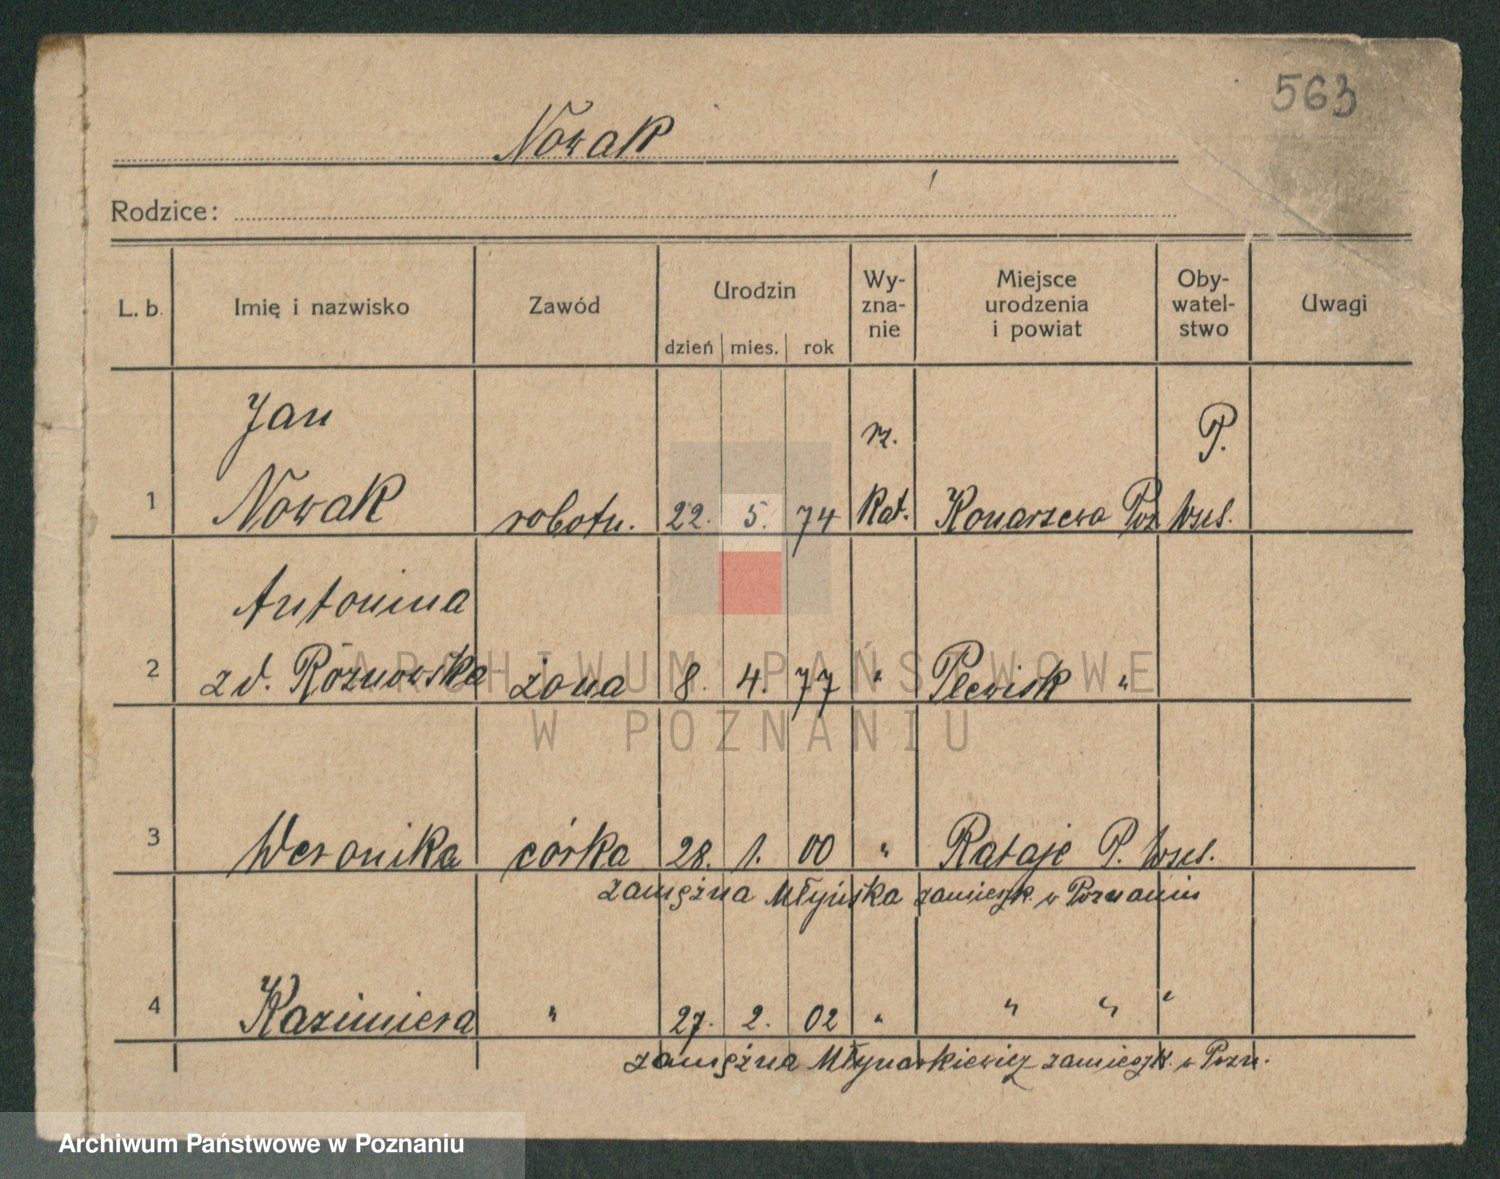 563
Nowak
Rodzice:
L. b. Imię i nazwisko Zawód Urodzin dzień mies. rok Wy-zna-nie Miejsce urodzenia i powiat Oby-watel-stwo Uwagi
Jan rz. P.
1 Nowak robotn. 22. 5. 74 kat. Konarzewo Poz. Wsch.
Antonina
2 zd. Różnowska żona 8. 4. 77 " Plewisk "
3 Weronika córka 28. 1. 00 " Rataje P. Wsch.
zamężna Młyńska zamieszk. w Poznaniu
4 Kazimiera " 27. 2. 02 " " " "
zamężna Młynarkiewicz zamieszk. w Pozn.
ARCHIWUM PAŃSTWOWE
W POZNANIU
Archiwum Państwowe w Poznaniu